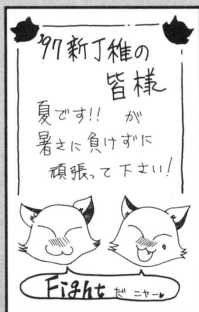 '97新丁稚の
皆様
夏です!! が
暑さに負けずに
頑張って下さい!
Fight だニャー♥